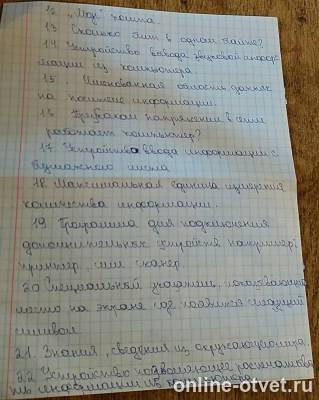 12 „Мозг" компа.
13 Сколько бит в одном байте?
14 Устройство вывода звуковой инфор-
мации из компьютера
15. Именованная область данных
на носителе информации.
16 При каком напряжении в сети
работает компьютер?
17 Устройства ввода информации с
бумажного листа
18 Максимальная единица измерения
количества информации.
19 Программа для подключения
дополнительных устройств например:
принтер, или сканер.
20 Специальный указатель, показывающий
место на экране где появится следующий
символ
21. Знания, сведения из окружающего мира,
22 Устройство позволяющее распечатова
ть информацию из компьютера.
online-otvet.ru